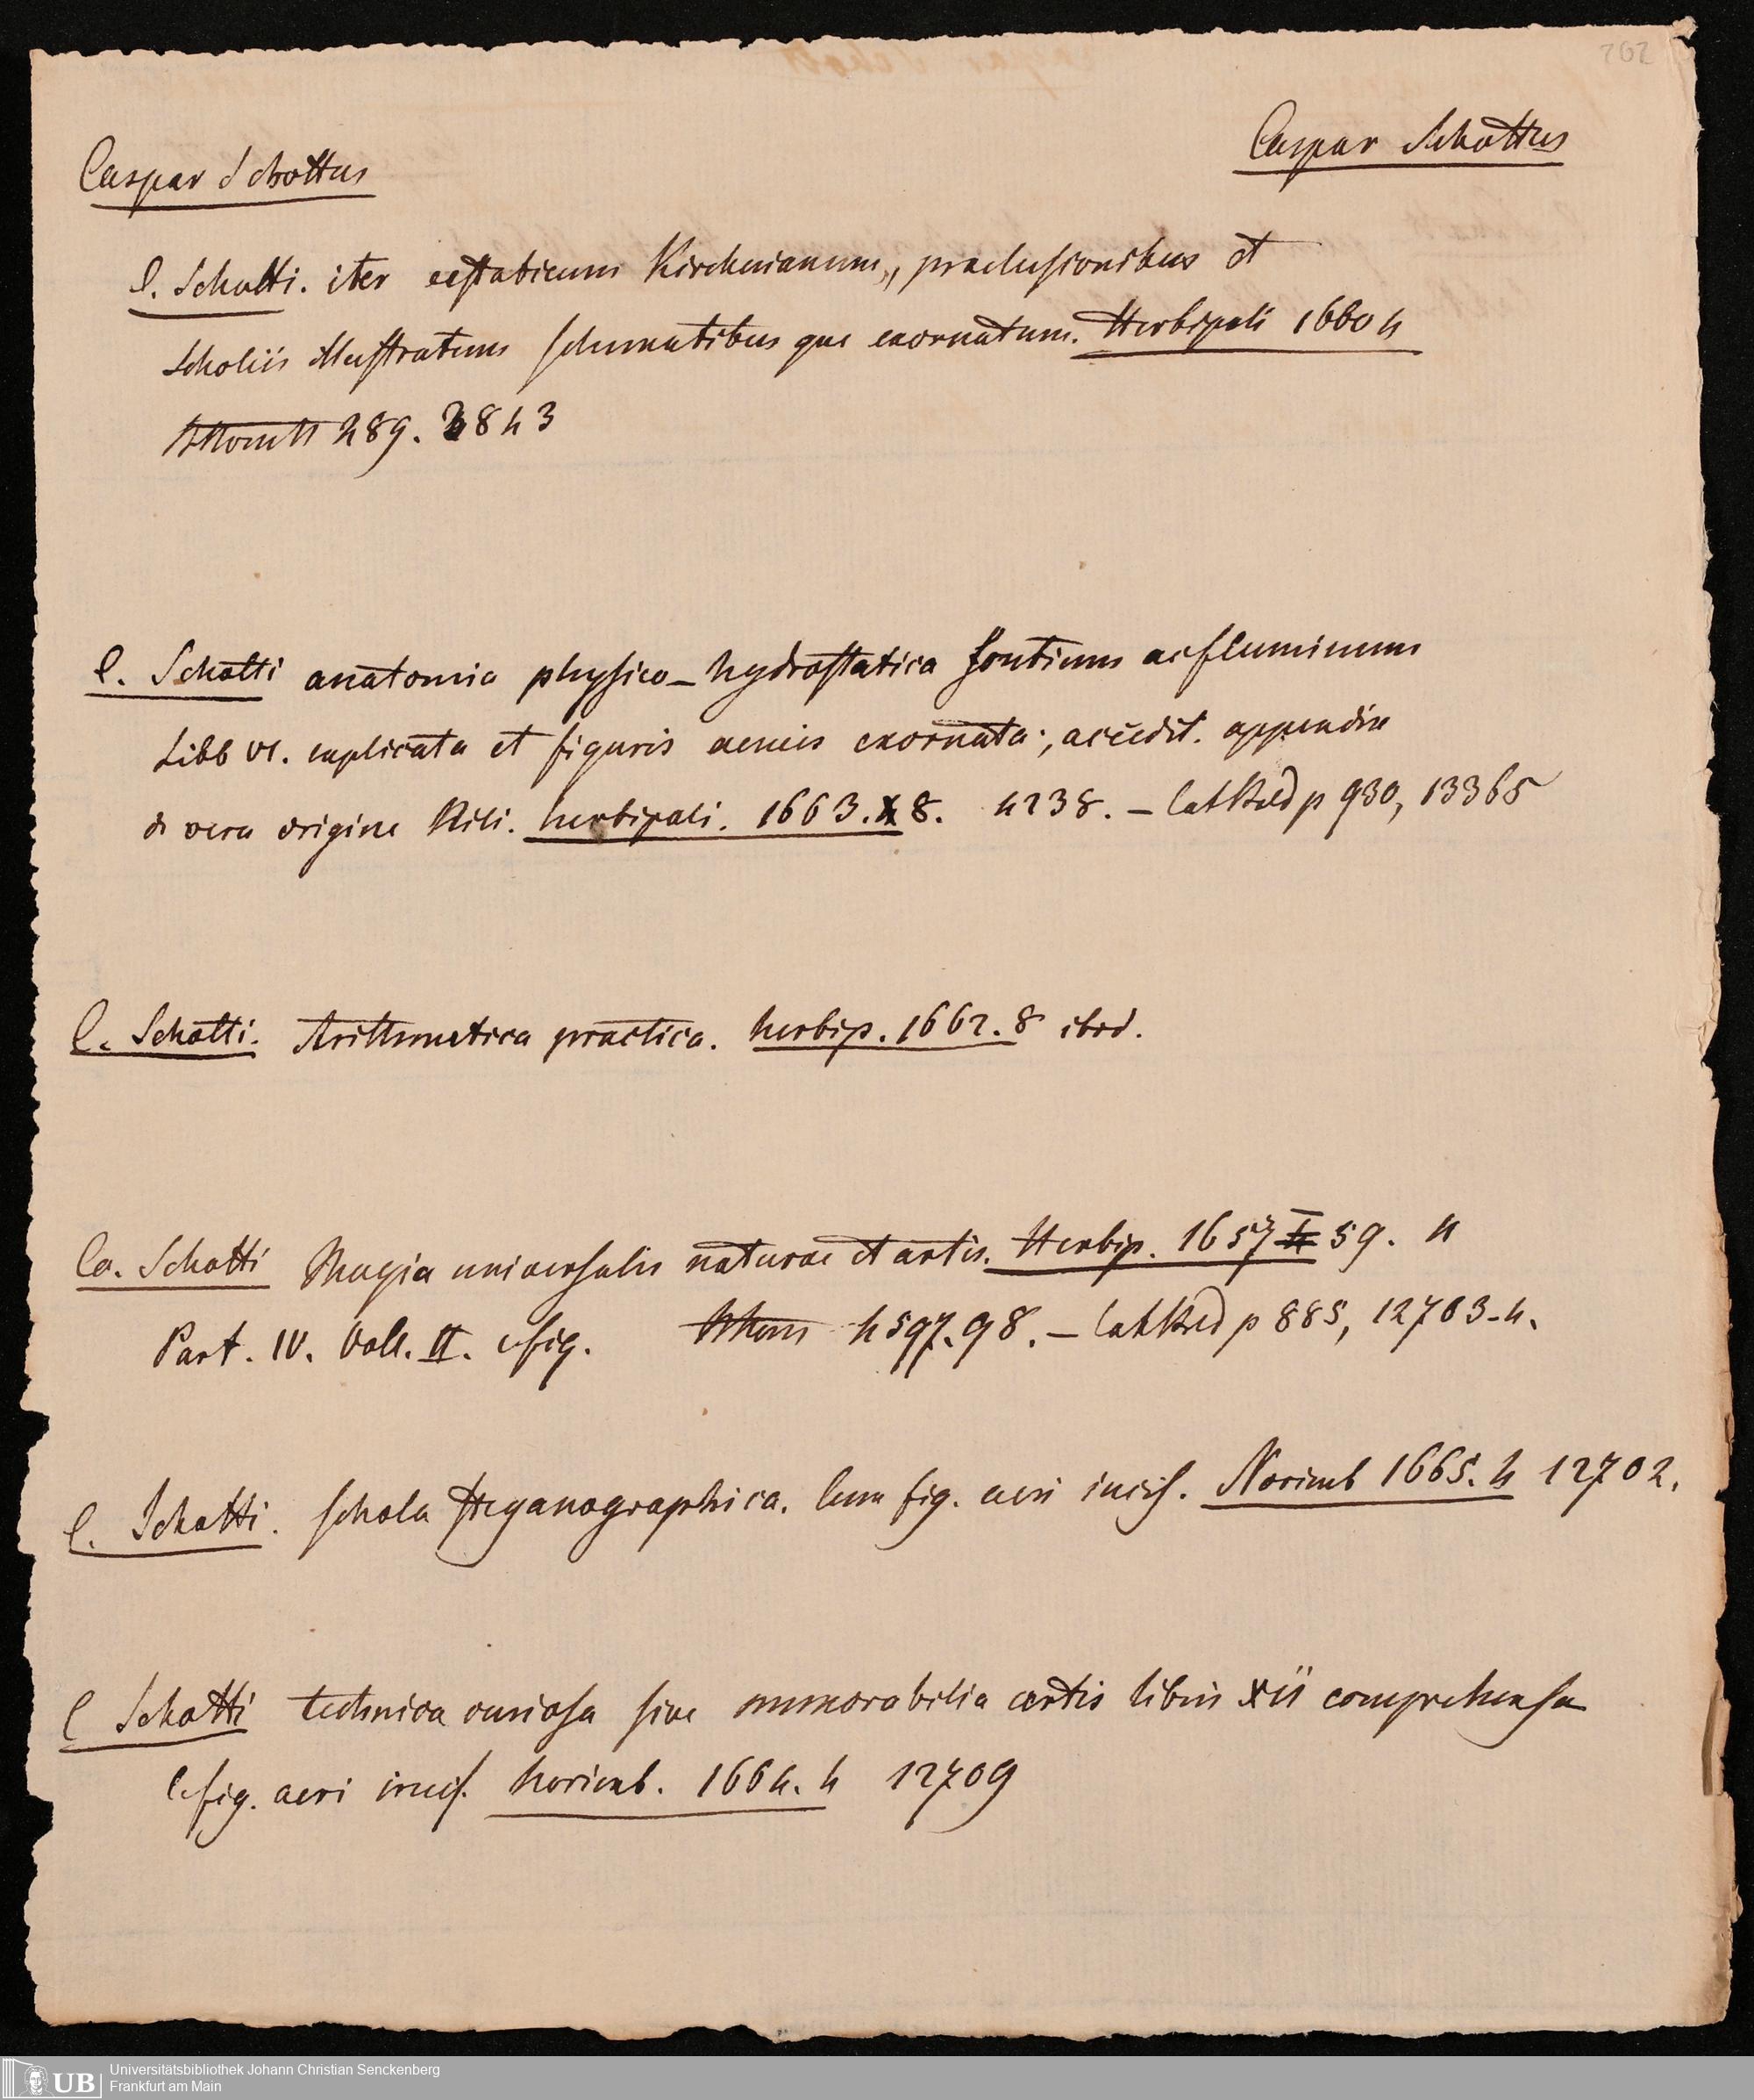 202
Caspar Schottus
Caspar Schottus
C. Schotti. iter ecstaticum Kircherianum, praelusionibus et
Scholiis illustratum schematibus que exornatum. Herbipoli 1660 4
289. 2843
C. Schotti anatomia physico-hydrostatica fontium ac fluminum
Libb VI. explicata et figuris aeneis exornata; accedit. appendix
de vera origine Nili. herbipoli. 1663. 8. 4238. – p 930, 13365
C. Schotti. Arithmetica practica. herbip. 1662. 8 ibid.
Ca. Schotti Magia universalis naturae et artis. Herbip. 1657 59. 4
Part. IV. Voll. II. c fig. 4597.98. – p 885, 12703-4.
C. Schotti. schola steganographica. Cum fig. aeri incis. Norimb 1665. 4 12702.
C Schotti technica curiosa sive mirorabilia artis libris XII comprehensa
C fig. aeri incis. Norimb. 1664. 4 12709
UB
Universitätsbibliothek Johann Christian Senckenberg
Frankfurt am Main